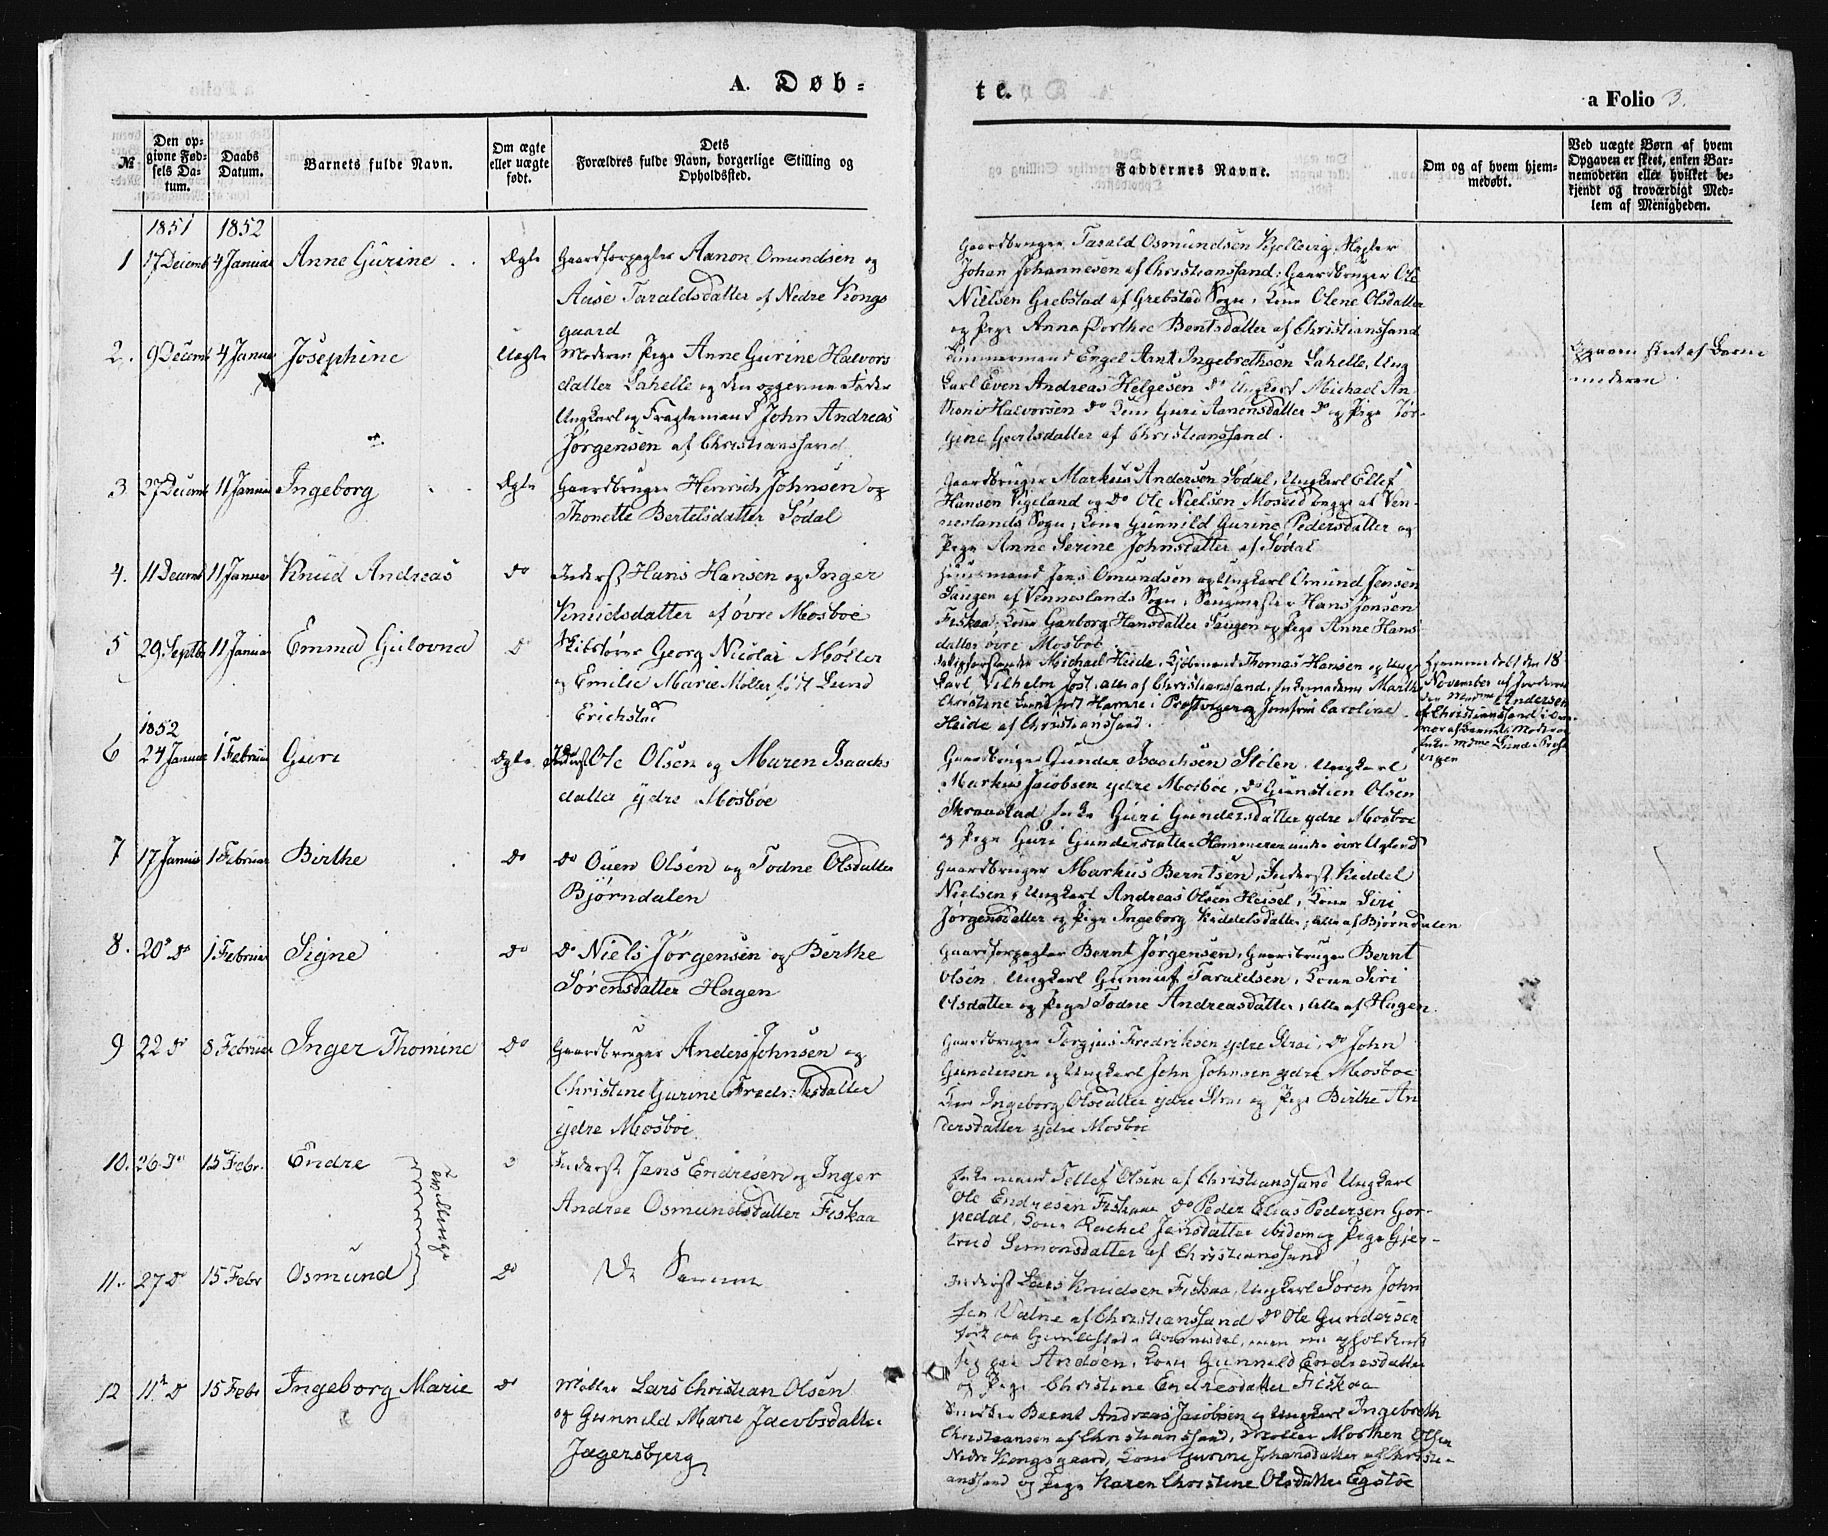 A. Døb-
te.
a Folio 3.
№
Den op-
givne Fød-
sels Da-
tum.
Daabs
Datum.
Barnets fulde Navn.
Om ægte
eller uægte
født.
Dets
Forældres fulde Navn, borgerlige Stilling og
Opholdssted.
Faddernes Navne.
Om og af hvem hjem-
medøbt.
Ved uægte Børn af hvem
Opgaven er skeet, enten Bar-
nemoderen eller hvilket be-
kjendt og troværdigt Med-
lem af Menigheden.
1851 1852
1 17 Decemb 4 Januar Anne Gurine Ægte
Gaardforpagter Aanon Omundsen og
Aase Taraldsdatter af Nedre Kongs
gaard
Gaardbruger Tarald Osmundsen Kjellevig,
Johan Johannesen af Christianssand, Gaardbruger Ole
Nielsen Grebstad af Grebstad Sogn, Kone Olene Olsdatter
og Pige Anna Dorthee Bentsdatter af Christianssand
2. 9 Decemb 4 Januar Josephine Uægte
Moderen Pige Anne Gurine Halvors
datter Lahelle og den opgivne Fader
Ungkarl og Fragtemand John Andreas
Jørgensen af Christianssand
Tømmermand Engel Arnt Ingebrethsen Lahelle, Ung
karl Even Andreas Helgesen do Ungkarl Michael An
thoni Halvorsen do Kone Guri Aanonsdatter do og Pige Tør-
gine datter af Christianssand.
Opgaven skeet af Barne
moderen
3 27 Decemb 11 Januar Ingeborg Ægte
Gaardbruger Henrich Johnsen og
Thonette Bertelsdatter Sødal
Gaardbruger Markus Andersen Sødal, Ungkarl Ellef
Hansen Vigeland og do Ole Nielsen Moseid begge af Ven-
neslands Sogn, Kone Gunnild Gurine Pedersdatter og
Pige Anne Serine Johnsdatter af Sødal
4. 11 Decemb 11 Januar Knud Andreas do
Inderst Hans Hansen og Inger
Knudsdatter af øvre Mosbøe
Huusmand Jens Omundsen og Ungkarl Omund Jensen
Saugen af Venneslands Sogn, Saugmester Hans Jensen
Fiskaa, Kone Garborg Hansdatter Saugen og Pige Anne Hans
datter øvre Mosbøe
5 29 Septbr 11 Januar Emma Gulovna D
Skibsfører Georg Nicolai Møller
og Emilie Marie Møller født Lund
Erichstad
Michael Heide, Kjøbmand Thomas Hansen og Ung
karl Vilhelm Jost, alle af Christianssand, Enkemadame Marthe
Christine Lund født i Prestvigen og Jomfru Caroline
Heide af Christianssand.
Hjemmedøbt den 18
November af Jorde
Andersen
af Christianssand
Lund Prest
vigen
1852
6 24 Januar 1 Februar Guri Ægte
Inderst Ole Olsen og Maren Isaachs
datter ydre Mosbøe
Gaardbruger Gunder Isachsen Stølen, Ungkarl
Markus Jacobsen ydre Mosbøe, do Gunstien Olsen
Skraastad, Enke Guri Gundersdatter ydre Mosbøe
og Pige Guri Gundersdatter Hammeren under øvre Ugland
7 17 Januar 1 Februar Birthe do
do Ouen Olsen og Todne Olsdatter
Bjørndalen
Gaardbruger Markus Berntsen, Inderst Keddel
Nielsen, Ungkarl Andreas Olsen Heisel, Kone Siri
Jørgensdatter og Pige Ingeborg Keddelsdatter, alle af Bjørndalen
8. 20 do 1 Februar Signe do
do Niels Jørgensen og Birthe
Sørensdatter Hagen
Gaardforpagter Bernt Jørgensen, Gaardbruger Bernt
Olsen, Ungkarl Gunnuf Taraldsen, Kone Siri
Olsdatter og Pige Todne Andreasdatter, alle af Hagen.
9 22 do 8 Februar Inger Thomine do
Gaardbruger Anders Johnsen og
Christene Gurine Fredriksdatter
ydre Mosbøe
Gaardbruger Torgius Fredriksen ydre Strai, do John
Gundersen og Ungkarl John Johnsen ydre Mosbøe
Kone Ingeborg Olsdatter ydre Strai og Pige Birthe An
dersdatter ydre Mosbøe
10. 26 do 15 Febr. Endre
Tvillinge
Inderst Jens Endresen og Inger
Andrea Osmundsdatter Fiskaa
Enkemand Tellef Olsen af Christianssand Ungkarl
Ole Endresen Fiskaa do Peder Elias Pedersen Gor-
pedal, Kone Rachel Jensdatter ibidem og Pige Gjer-
trud Simonsdatter af Christianssand
11. 27 do 15 Febr Osmund do
De Samme
Inderst Lars Knudsen Fiskaa, Ungkarl Søren John
sen af Christianssand do Ole Gundersen
sig paa Andøen, Kone Gunnild Endresdatter
og Pige Christine Endresdatter Fiskaa
12 11 do 15 Febr Ingeborg Marie do
Møller Lars Christian Olsen
og Gunnild Marie Jacobsdatter
Jægersbjerg
Snedker Bernt Andreas Jacobsen og Ungkarl Ingebreth
Christiansen af Christianssand, Møller Morthen Olsen
Nedre Kongsgaard, Kone Gurine Johansdatter af Christi-
anssand og Pige Karen Christine Olsdatter Egsbøe